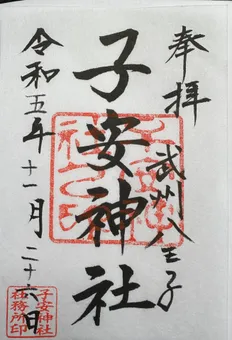 奉拝
武州八王子
子安神社
令和五年十一月二十六日
子安神社
社務所印